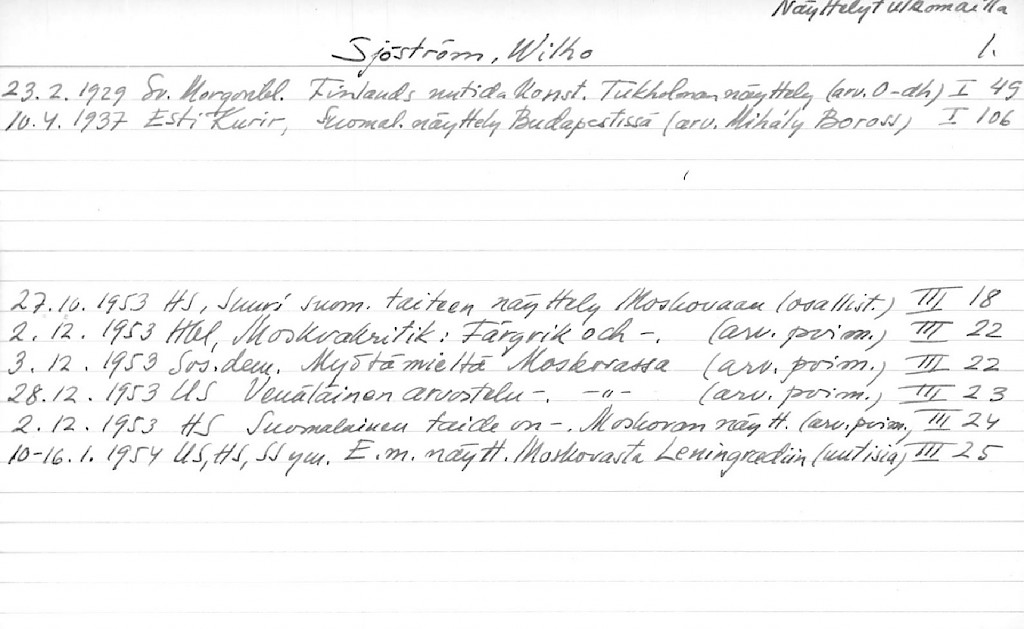 Näyttelyt ulkomailla
Sjöström, Wilho 1.
23.2.1929 Sv. Morgonbl. Finlands nutida konst. Tukholman näyttely (arv. O-dh) I 49
10.4.1937 Esti Kurir, Suomal. näyttely Budapestissä (arv. Mihály Boross) I 106
27.10.1953 HS, Suuri suom. taiteen näyttely Moskovaan (osallist.) III 18
2.12.1953 Hbl, Moskvakritik: Färgrik och -. (arv. poim.) III 22
3.12.1953 Sos.dem. Myötämieltä Moskovassa (arv. poim.) III 22
28.12.1953 US Venäläinen arvostelu -. -"- (arv. poim.) III 23
2.12.1953 HS Suomalainen taide on -. Moskovan näytt. (arv. poim.) III 24
10-16.1.1954 US, HS, SS ym. E.m. näytt. Moskovasta Leningradiin (uutisia) III 25